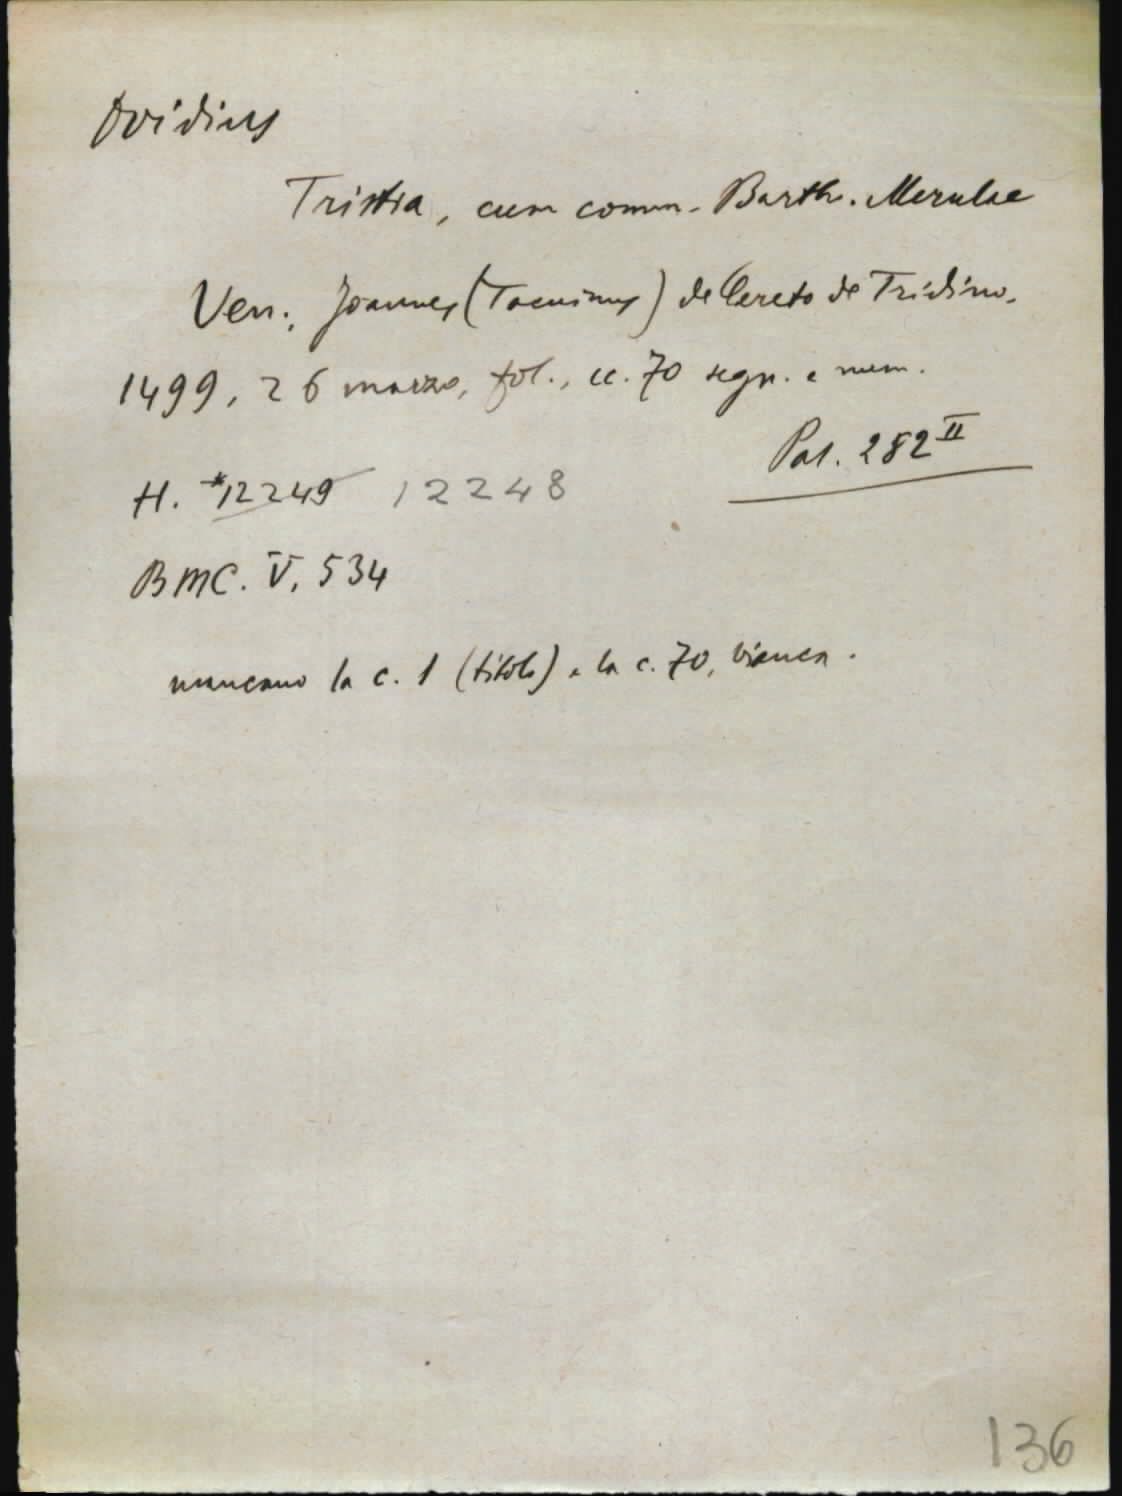 Ovidius
Tristia, cum comm. Barth. Merulae
Ven., Joannes (Tacuinus) de Cereto de Tridino,
1499, 26 marzo, fol., cc. 70 segn. e num.
Pal. 282 II
H. *12249 12248
BMC. V, 534
mancano la c. 1 (titolo) e la c. 70, bianca.
136